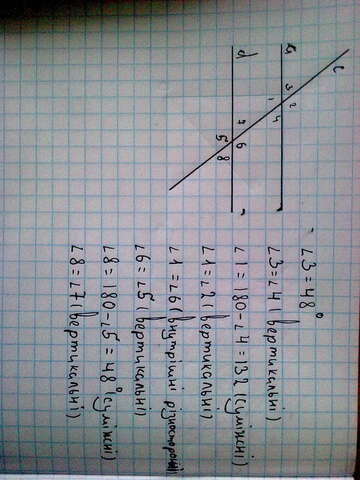 c
a
d
3
2
1
4
7
6
5
8
∠3 = 48°
∠3 = ∠4 (вертикальні)
∠1 = 180 - ∠4 = 132 (суміжні)
∠1 = ∠2 (вертикальні)
∠1 = ∠6 (внутрішні різносторонні)
∠6 = ∠5 (вертикальні)
∠8 = 180 - ∠5 = 48° (суміжні)
∠8 = ∠7 (вертикальні)